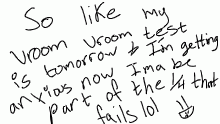 So like my
vroom vroom test
is tomorrow & I'm getting
anxious now Ima be
part of the 1/4 that
fails lol